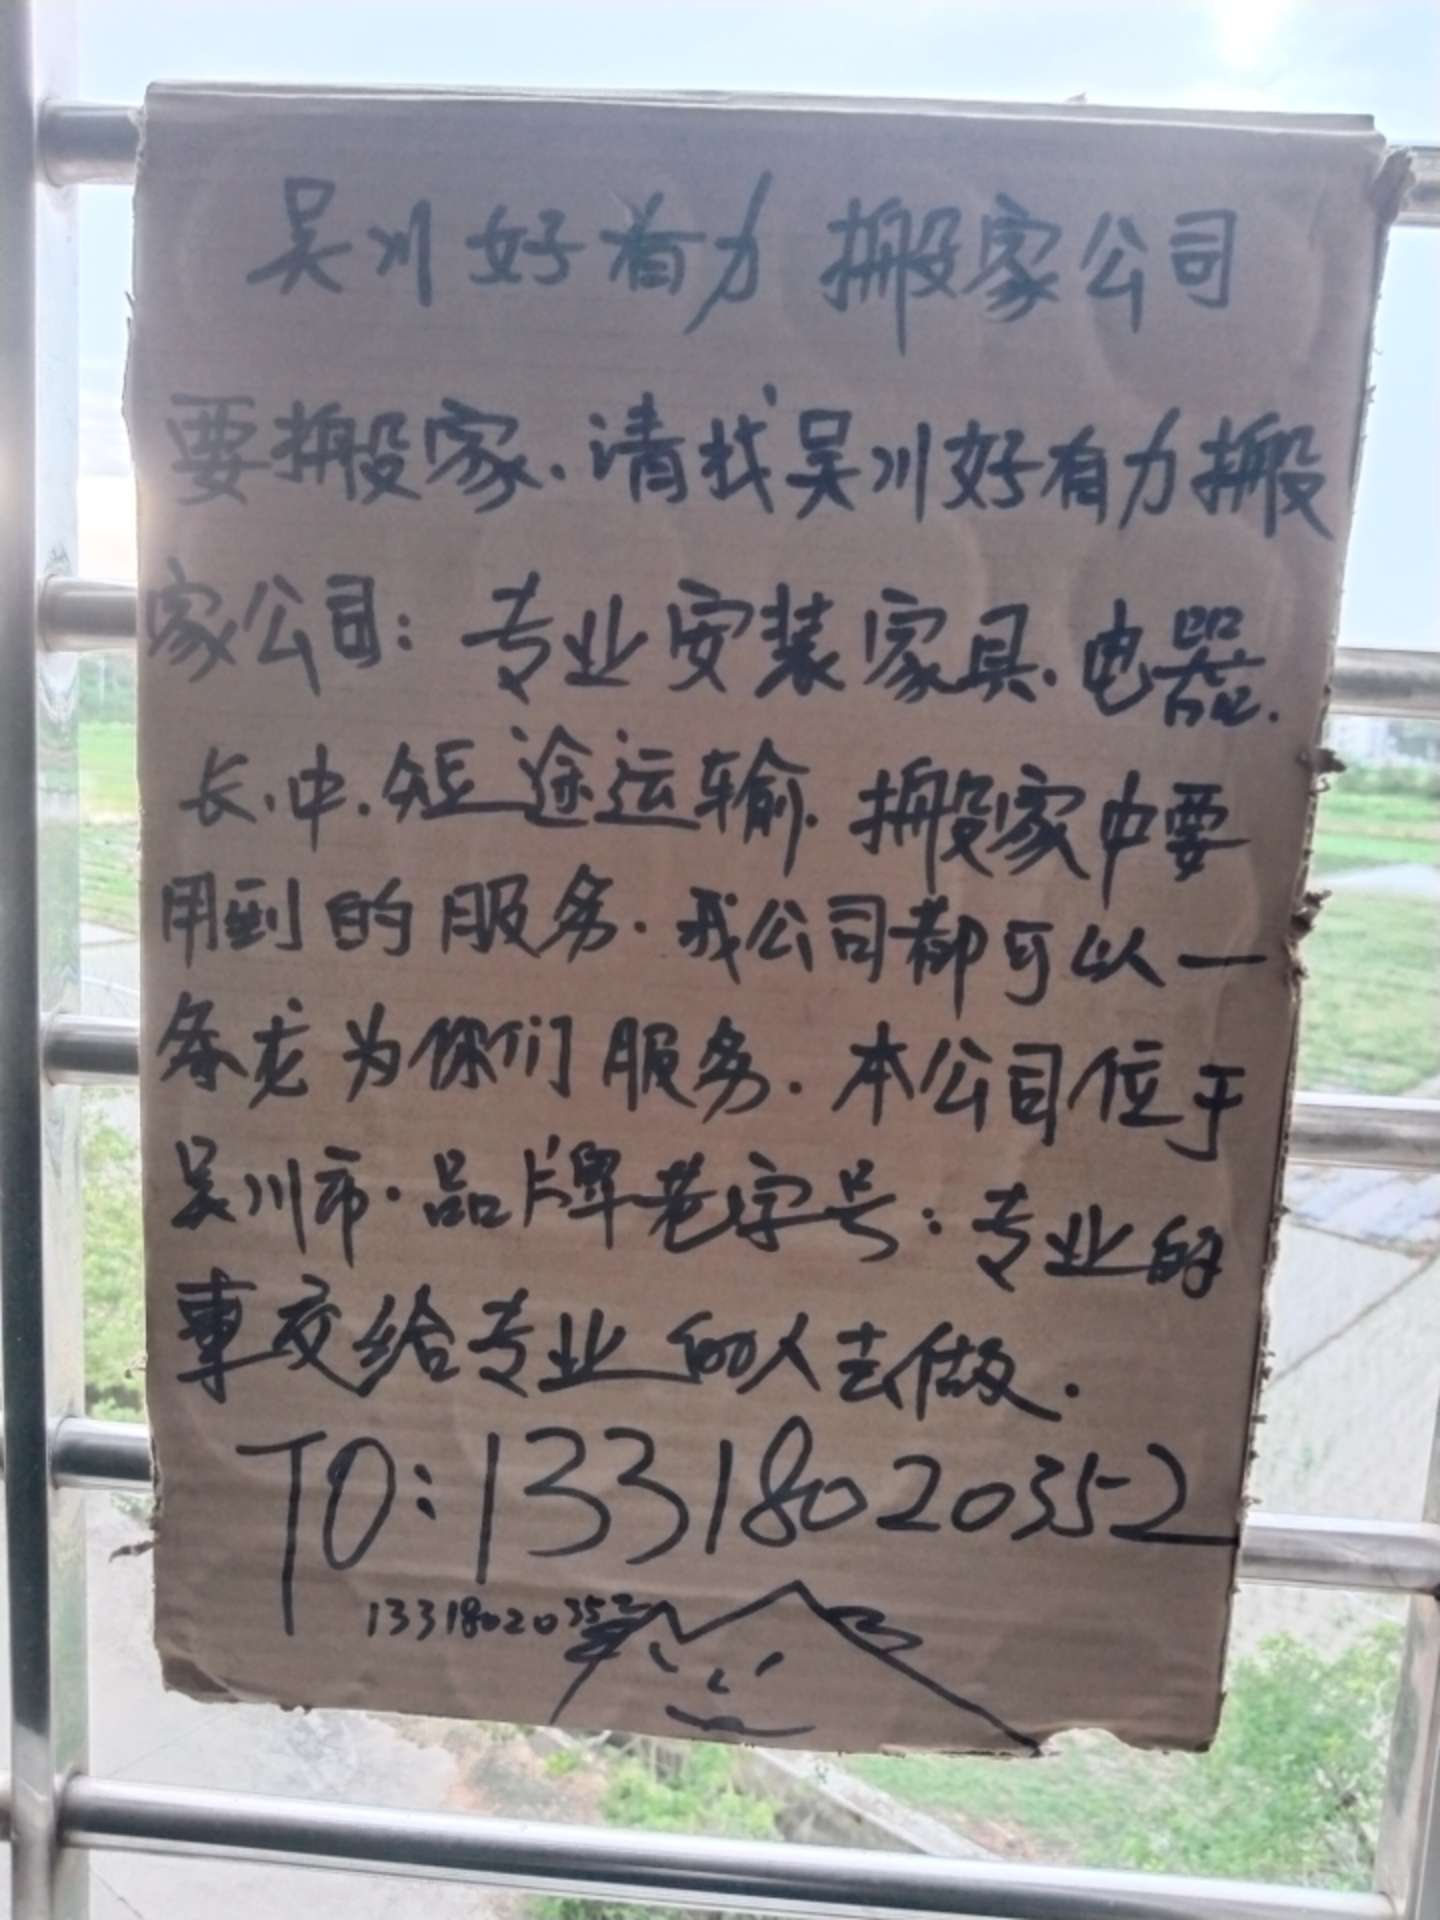 吴川好有力搬家公司
要搬家.请找吴川好有力搬
家公司:专业安装家具.电器.
长.中.短途运输.搬家中要
用到的服务.我公司都可以一
条龙为你们服务.本公司位于
吴川市.品牌老字号:专业的
事交给专业的人去做.
TO:13318020352
13318020352